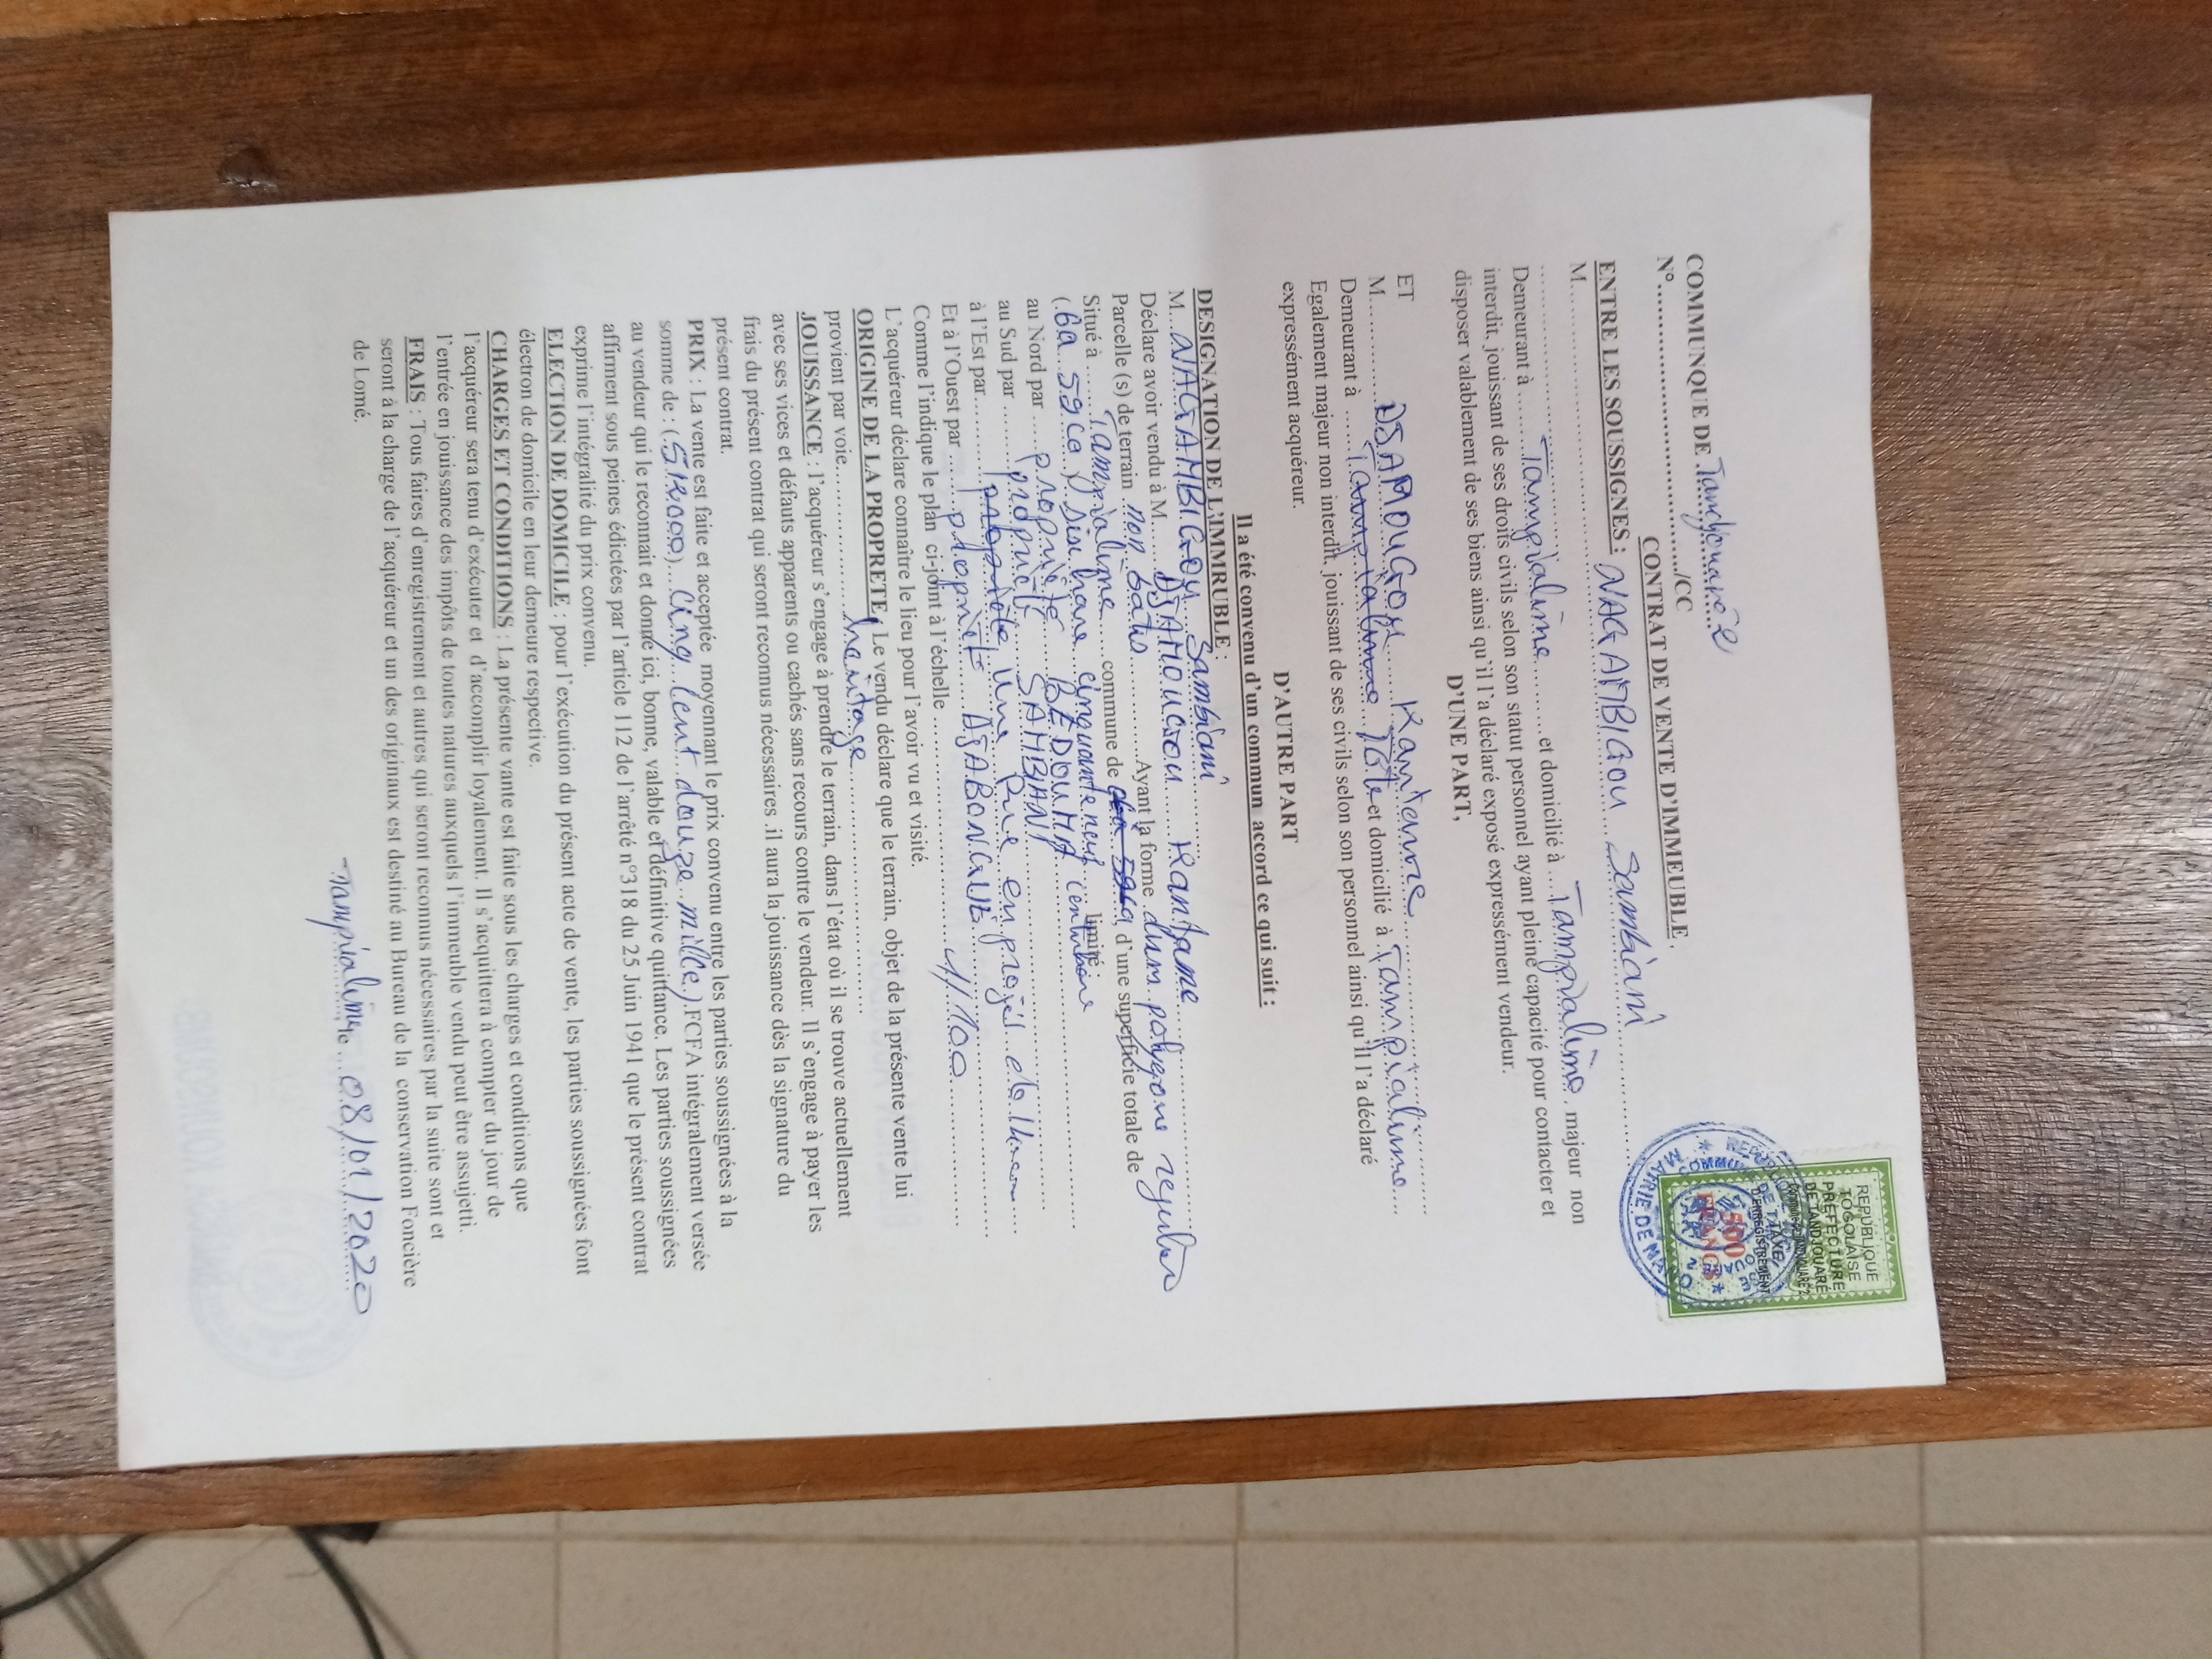 COMMUNQUE DE Tandjouaré
N°............................../CC
CONTRAT DE VENTE D'IMMEUBLE.
ENTRE LES SOUSSIGNES :
M. NAGAMBIGOU Sambiani
Demeurant à Tampialime et domicilié à Tampialime, majeur non
interdit, jouissant de ses droits civils selon son statut personnel ayant pleine capacité pour contacter et
disposer valablement de ses biens ainsi qu'il l'a déclaré exposé expressément vendeur.
D'UNE PART,
ET
M. DJAMOUGOU Kantame
Demeurant à Tampialime et domicilié à Tampialime
Egalement majeur non interdit, jouissant de ses civils selon son personnel ainsi qu'il l'a déclaré
expressément acquéreur.
D'AUTRE PART
Il a été convenu d'un commun accord ce qui suit :
DESIGNATION DE L'IMMRUBLE :
M. NAGAMBIGOU Sambiani
Déclare avoir vendu à M. DJAMOUGOU Kantame
Parcelle (s) de terrain non batis Ayant la forme d'un polygone
Situé à Tampialime commune de , d'une superficie totale de
(6a 59ca) six hare cinquante neuf limité
au Nord par propriété BEDOUMA
au Sud par propriété SAMBIANI
à l'Est par Une Rue en projet de
Et à l'Ouest par propriété
Comme l'indique le plan ci-joint à l'échelle 1/100
L'acquéreur déclare connaître le lieu pour l'avoir vu et visité.
ORIGINE DE LA PROPRETE : Le vendu déclare que le terrain, objet de la présente vente lui
provient par voie héritage
JOUISSANCE : l'acquéreur s'engage à prendre le terrain, dans l'état où il se trouve actuellement
avec ses vices et défauts apparents ou cachés sans recours contre le vendeur. Il s'engage à payer les
frais du présent contrat qui seront reconnus nécessaires .il aura la jouissance dès la signature du
présent contrat.
PRIX : La vente est faite et acceptée moyennant le prix convenu entre les parties soussignées à la
somme de : (512000) Cinq cent douze mille) FCFA intégralement versée
au vendeur qui le reconnait et donne ici, bonne, valable et définitive quittance. Les parties soussignées
affirment sous peines édictées par l'article 112 de l'arrêté n°318 du 25 Juin 1941 que le présent contrat
exprime l'intégralité du prix convenu.
ELECTION DE DOMICILE : pour l'exécution du présent acte de vente, les parties soussignées font
électron de domicile en leur demeure respective.
CHARGES ET CONDITIONS : La présente vante est faite sous les charges et conditions que
l'acquéreur sera tenu d'exécuter et d'accomplir loyalement. Il s'acquittera à compter du jour de
l'entrée en jouissance des impôts de toutes natures auxquels l'immeuble vendu peut être assujetti.
FRAIS : Tous faires d'enregistrement et autres qui seront reconnus nécessaires par la suite sont et
seront à la charge de l'acquéreur et un des originaux est destiné au Bureau de la conservation Foncière
de Lomé.
Tampialime le 08/01/2020
REPUBLIQUE
TOGOLAISE
PREFECTURE
DE TANDJOUARÉ
DE TAXE
D'ENREGISTREMENT
500
FRANCS